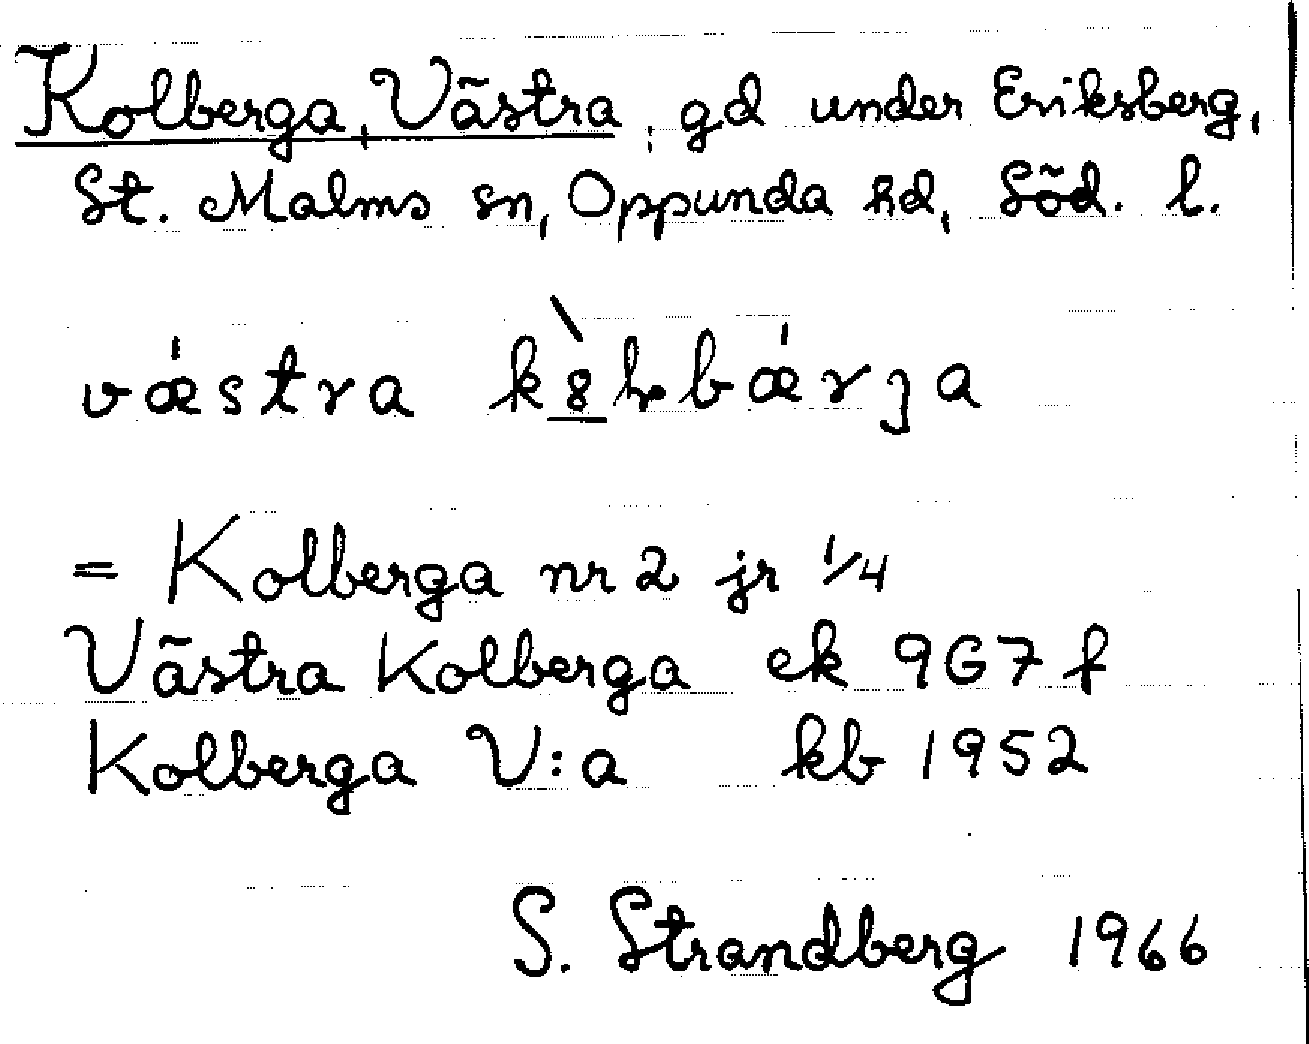 Kolberga, Västra, gd under Eriksberg,
St. Malms sn, Oppunda hd, Söd. l.
vǽstra kò̱lbǽrja
= Kolberga nr 2 jr 1/4
Västra Kolberga ek 9G7 f
Kolberga V:a kb 1952
S. Strandberg 1966